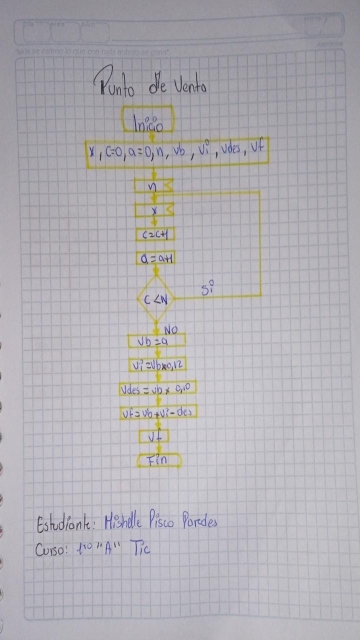 Punto de Vento
Inicio
x, C=0, a=0, n, vb, vi, vdes, vf
n
x
C=C+1
a=a+1
C<N
Si
NO
Vb=a
Vi=Vb×0,12
Vdes=Vb×0,10
Vf=Vb+Vi-des
Vf
Fin
Estudiante: Mishelle Pisco Paredes
Curso: 1ro "A" Tic